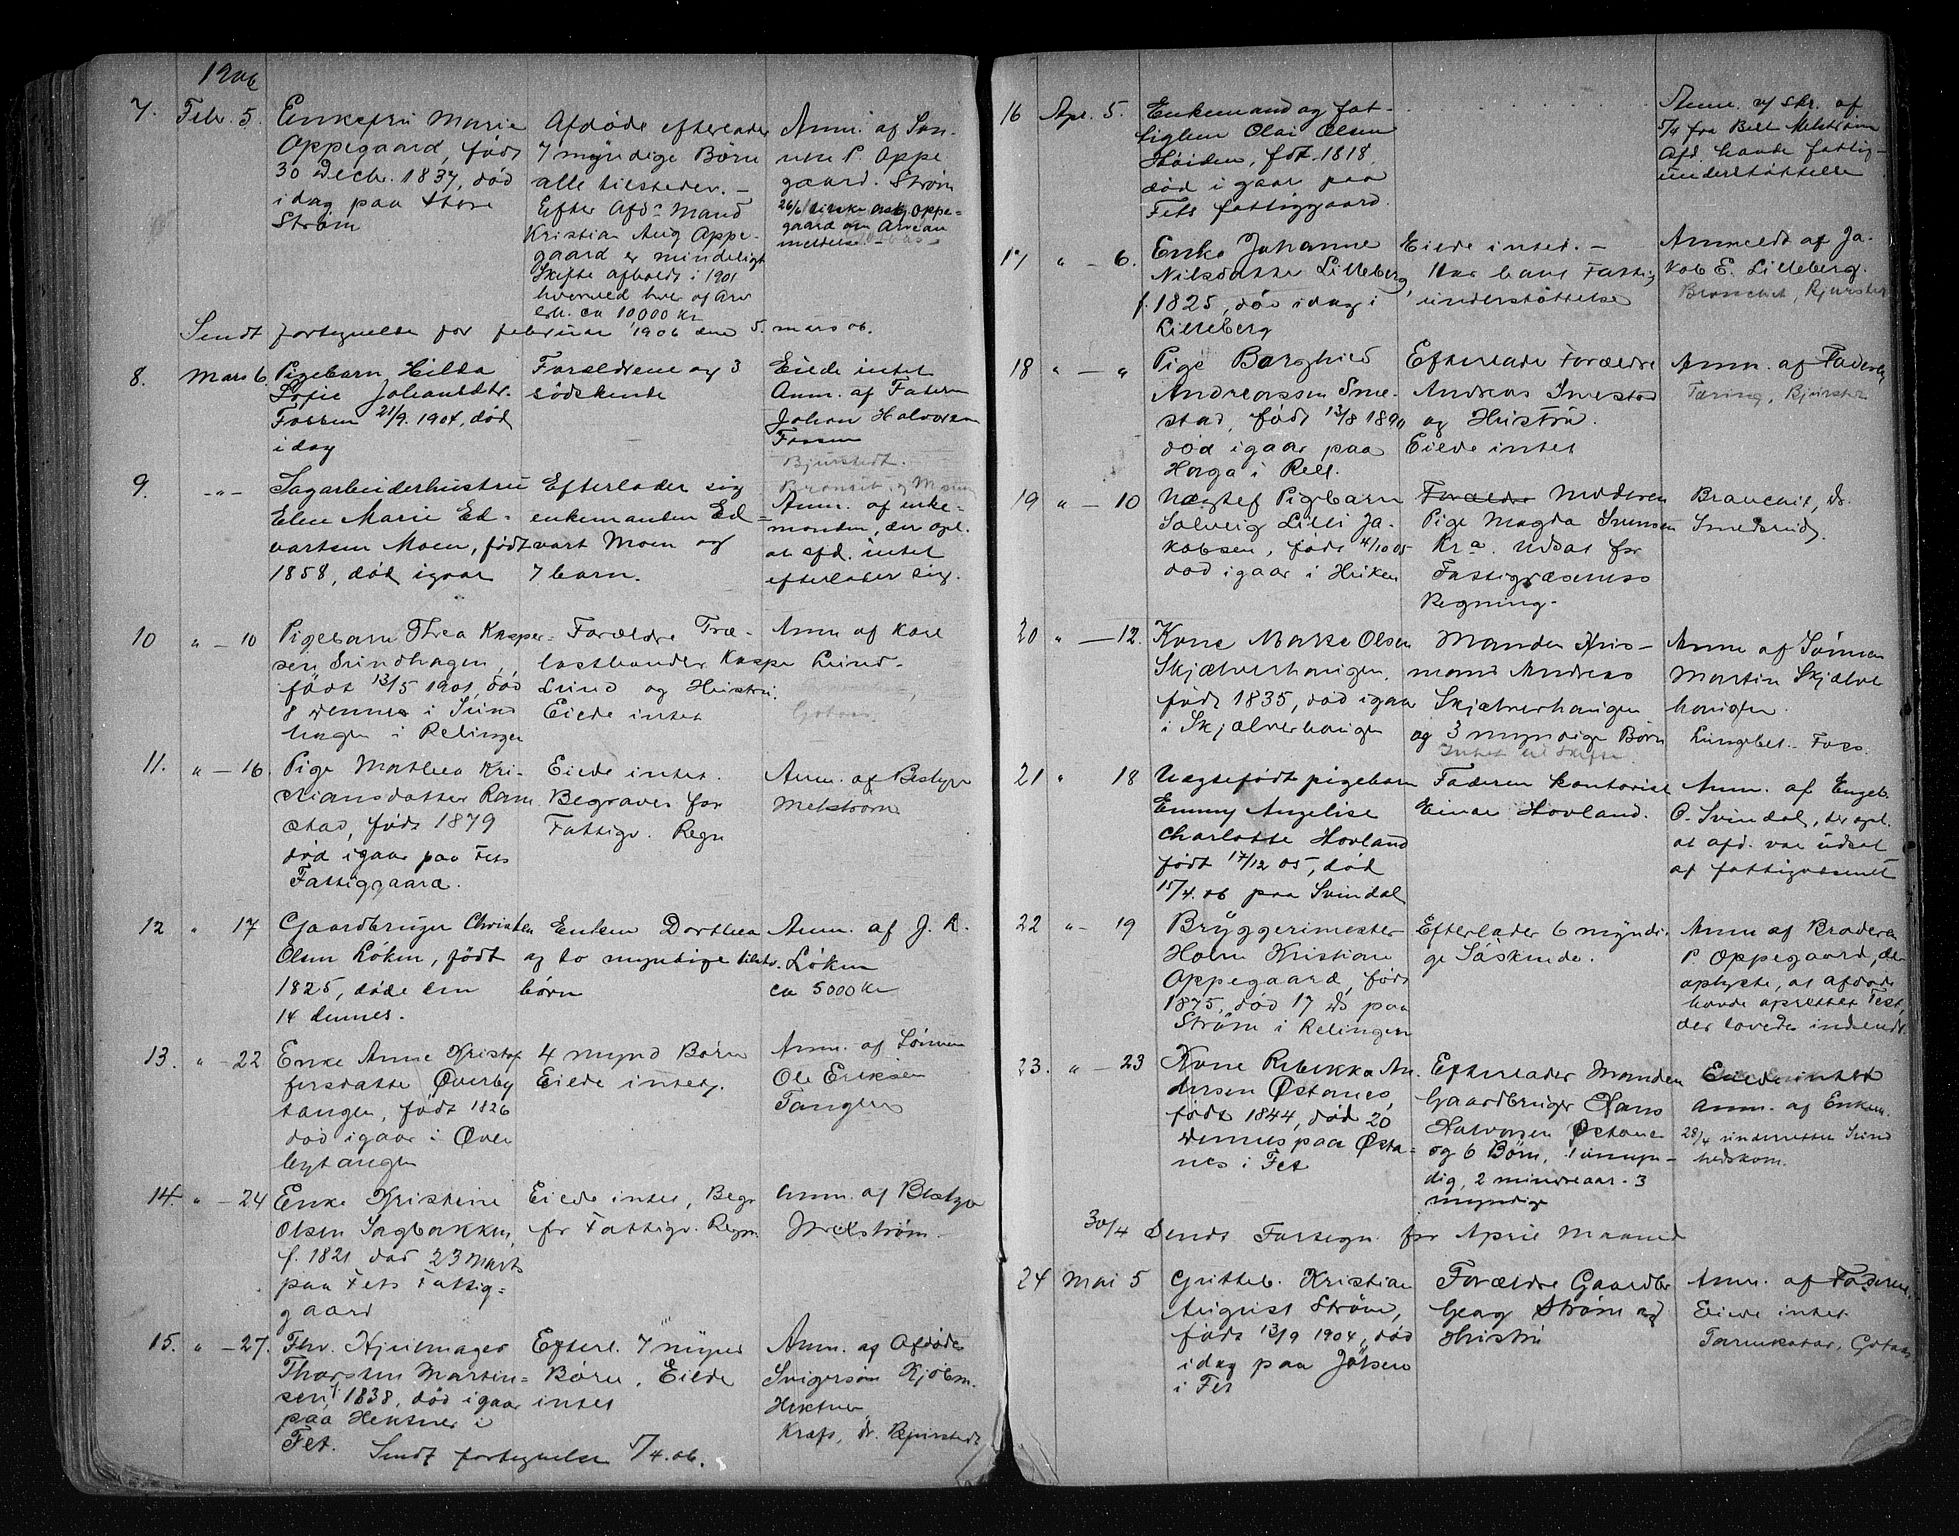 1906
7. Febr. 5. Enkefru Marie
Oppegaard, født
30 Decbr. 1837, død
idag paa Store
Strøm
Afdøde efterlader
7 myndige Børn
alle tilstede. –
Efter Afd. Mand
Kristian Aug Oppe-
gaard er mindeligt
Skifte afholdt i 1901
hvorved hver af
ca 10000 Kr
Anm. af Søn-
nen P. Oppe
gaard. Strøm
26/6 Oppe=
gaard om Arvean
meldelse –
Sendt fortegnelse for februar 1906 den 5. mars 06.
8. Mars 6. Pigebarn Hilda
Sofie Johansdtr.
Fossen 21/9. 1904, død
i dag
Forældrene og 3
södskende
Eiede intet
Anm. af Faderen
Johan Halvorsen
Fossen
Bjurstedt.
9. -"- Sagarbeiderhustru
Elen Marie Ed-
vartsen Moen, født
1858, død igaar
Efterlader sig
enkemanden Ed=
vart Moen og
7 barn.
Anm. af enke-
manden, der opl.
at afd. intet
efterlader sig.
10 " – 10 Pigebarn Thea Kasper-
sen Lundhagen,
født 13/5 1901, død
8 dennes i Lund
hagen i Relingen
Forældre Træ-
lasthandler Kaspe
Lund og Hustru.
Eiede intet
Anm af Karl
Lund-
Gotaas.
11. " – 16. Pige Mathea Kri-
stiansdatter Ram
stad, født 1879
død igaar paa Fets
Fattiggaard.
Eiede intet.
Begraves for
Fattigv. Regn
Anm. af Bestyr
Melstrøm
12 " 17 Gaardbruger Christen
Olsen Løken, født
1825, døde den
14 dennes.
Enken Dorthea
og to myndige tilstv.
børn
Anm. af J. K.
Løken
ca 5000 Kr
13. " – 22 Enke Anne Kristof
fersdatte Øverby
tangen, født 1826
død igaar i Øver
bytangen
4 mynd Børn
Eiede intet.
Anm. af Sønnen
Ole Eriksen
Tangen
14. " – 24 Enke Kristine
Olsen Sagbakken,
f. 1821 død 23 Marts
paa Fets Fattig-
gaard
Eiede intet, Begr
for Fattigv. Regn
Anm. af Bestyr
Melstrøm.
15. " – 27. Fhv. Hjulmager
Thorsten Martin=
sen, f 1838, død igaar
paa Hektner i
Fet.
Efterl. 7 mynd
Børn, Eiede
intet
Anm. af Afdødes
Svigersøn Kjølm.
Hektner
Kræft, dr. Bjurstedt
Sendt fortegnelse 5/4.06.
16 Apr. 5. Enkemand og fat-
tiglem Olai Olsen
Høiden, fdt. 1818,
død i gaar paa
Fets fattiggaard.
Anm. v/ skr. af
5/4 fra Best Melstrøm
Afd. havde fattig-
understøttelse
17 " – 6. Enke Johanne
Nilsdatter Lilleberg,
f. 1825, død idag i
Lilleberg
Eiede intet. –
Har havt Fattig-
understøttelse
Anmeldt af Ja-
kob E. Lilleberg.
Bronchit, Bjurstedt
18 " – " Pige Borghild
Andreassen Sme-
stad, født 13/8 1890
død igaar paa
Horga i Rell.
Efterlade Forældre
Andreas Smestad
og Hustru.
Eiede intet
Anm. af Faderen
Tæring, Bjurstedt
19 " – 10 Uægtef Pigebarn
Solveig Lilli Ja-
kobsen, født 4/10 05
død igaar i Heiken
Forældre Moderen
Pige Magda Svensen
Kra. Udsat for
Fattigvæsenets
Regning.
Bronchit, dr.
Smedsrud.
20 " – 12. Kone Marte Olsen
Skjælverhaugen,
født 1835, død igaar
i Skjælverhaugen
Manden Hus-
mand Andreas
Skjælverhaugen
og 3 myndige Børn
Intet til Skifte.
Anm af Sønnen
Martin Skjælver
haugen.
Lungebet. Foss.
21 " 18 Uægtefødt pigebarn
Emmy Angelise
Charlotte Hovland
født 17/12 05, død
15/4.06 paa Svindal
Faderen kontorist
Einar Hovland.
Anm. af Engeb.
O. Svindal, der opl.
at afd. var udsat
af fattigvæsenet
22 " – 19 Bryggerimester
Holm Kristian
Oppegaard, født
1875, død 17 ds paa
Strøm i Relingen
Efterlader 6 myndi-
ge Søskende.
Anm af Broderen
P Oppegaard, der
oplyste, at afdøde
havde oprettet Test,
der lovedes indsendt
23. " – 23 Kone Rebekka An
dersen Østanes,
født 1844, død 20
dennes paa Østa-
nes i Fet
Efterlader Manden
Gaardbruger Hans
Halvorsen Østanes
og 6 Børn, 1 umyn-
dig, 2 mindreaar. 3
myndige
Eiede intet
Anm. af Enkem.
28/4 underrettet Sund
hedskom.
30/4 Sendt Fortegn. for April Maaned
24 Mai 5 Gutteb. Kristian
August Strøm,
født 13/9 1904, død
idag paa Jølsen
i Fet
Forældre Gaardbr
Georg Strøm og
Hustru
Anm. af Faderen,
Eiede intet
Tarmkatar, Gotaas